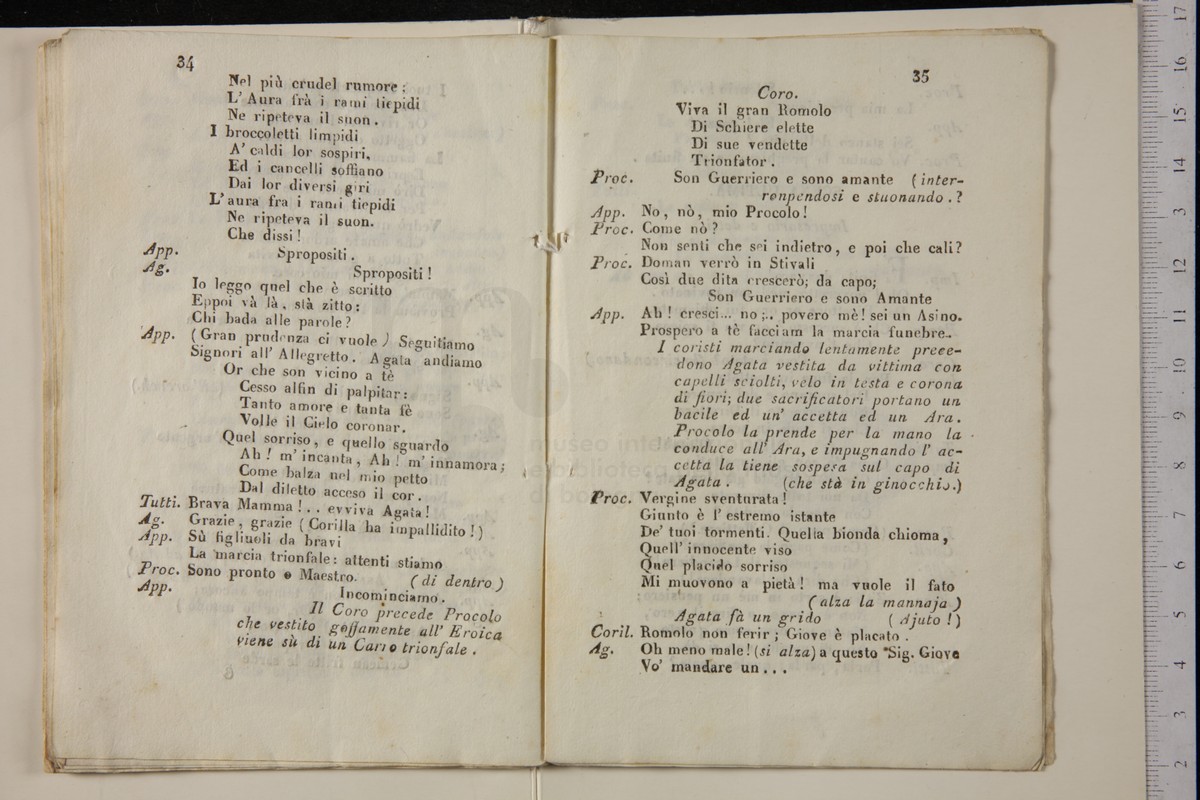 34
Nel più crudel rumore:
L' Aura frà i rami tiepidi
Ne ripeteva il suon.
I broccoletti limpidi
A' caldi lor sospiri,
Ed i cancelli soffiano
Dai lor diversi giri
L' aura fra i rami tiepidi
Ne ripeteva il suon.
Che dissi!
App. Spropositi.
Ag. Spropositi!
Io leggo quel che è scritto
Eppoi và là, stà zitto:
Chi bada alle parole?
App. (Gran prudenza ci vuole) Seguitiamo
Signori all' Allegretto. Agata andiamo
Or che son vicino a tè
Cesso alfin di palpitar:
Tanto amore e tanta fè
Volle il Cielo coronar.
Quel sorriso, e quello sguardo
Ah! m' incanta, Ah! m' innamora;
Come balza nel mio petto
Dal diletto acceso il cor.
Tutti. Brava Mamma!.. evviva Agata!
Ag. Grazie, grazie (Corilla ha impallidito!)
App. Sù figliuoli da bravi
La marcia trionfale: attenti stiamo
Proc. Sono pronto o Maestro. (di dentro)
App. Incominciamo.
Il Coro precede Procolo
che vestito goffamente all' Eroica
viene sù di un Carro trionfale.
35
Coro.
Viva il gran Romolo
Di Schiere elette
Di sue vendette
Trionfator.
Proc. Son Guerriero e sono amante (inter-
ronpendosi e stuonando.?
App. No, nò, mio Procolo!
Proc. Come nò?
Non senti che sei indietro, e poi che cali?
Proc. Doman verrò in Stivali
Così due dita crescerò; da capo;
Son Guerriero e sono Amante
App. Ah! cresci... no;.. povero mè! sei un Asino.
Prospero a tè facciam la marcia funebre..
I coristi marciando lentamente prece-
dono Agata vestita da vittima con
capelli sciolti, velo in testa e corona
di fiori; due sacrificatori portano un
bacile ed un' accetta ed un Ara.
Procolo la prende per la mano la
conduce all' Ara, e impugnando l' ac-
cetta la tiene sospesa sul capo di
Agata. (che stà in ginocchio.)
Proc. Vergine sventurata!
Giunto è l' estremo istante
De' tuoi tormenti. Quella bionda chioma,
Quell' innocente viso
Quel placido sorriso
Mi muovono a pietà! ma vuole il fato
(alza la mannaja)
Agata fà un grido (Ajuto!)
Coril. Romolo non ferir; Giove è placato.
Ag. Oh meno male! (si alza) a questo Sig. Giove
Vo' mandare un...